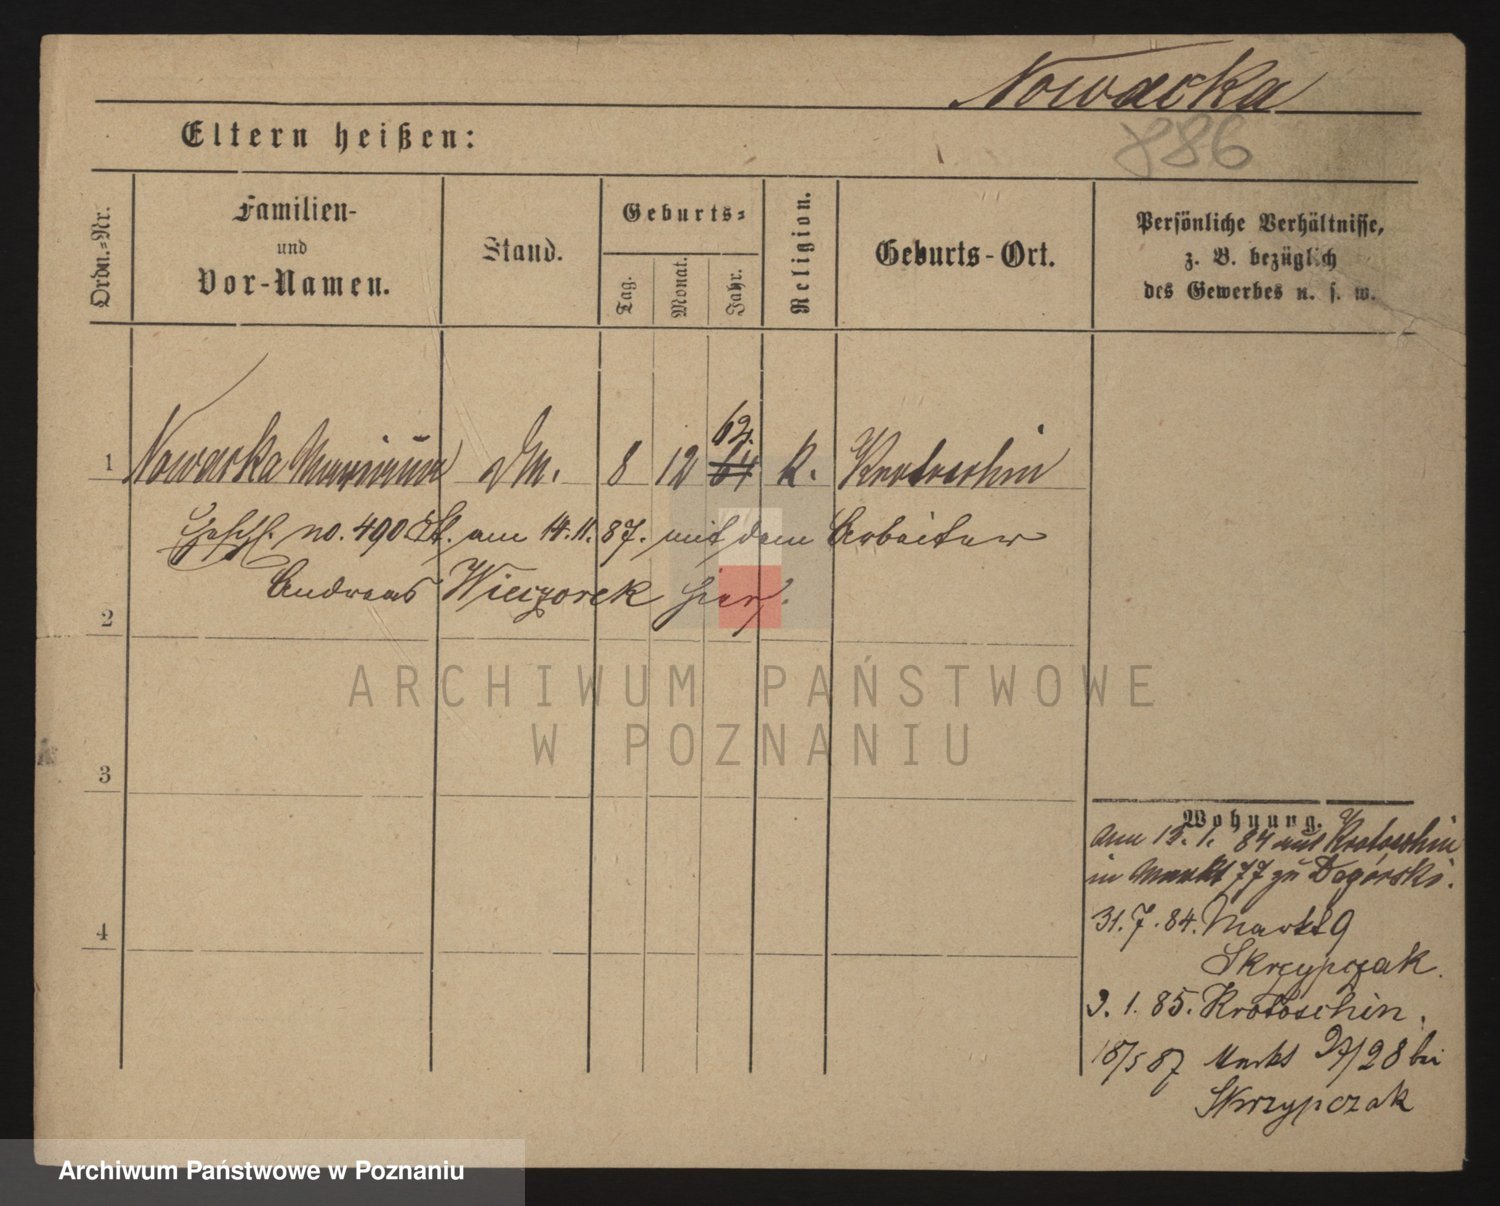 Nowacka
886
Eltern heißen:
Ordn.-Nr.
Familien-
und
Vor-Namen.
Stand.
Geburts-
Tag.
Monat.
Jahr.
Religion.
Geburts-Ort.
Persönliche Verhältnisse,
z. B. bezüglich
des Gewerbes u. s. w.
62.
1 Nowacka Marianna DM. 8 12 64 k. Krotoschin
no. 490 St. am 14.11.87. mit dem Arbeiter
Andreas Wieczorek hier.
2
3
4
ARCHIWUM PAŃSTWOWE
W POZNANIU
Wohnung.
Am 12.1.84 aus Krotoschin
in Markt 77 zu Dogórski.
31.7.84. Markt 9
Skrzypczak.
2.1.85. Krotoschin.
18/5 87 Markt 27/28 bei
Skrzypczak
Archiwum Państwowe w Poznaniu